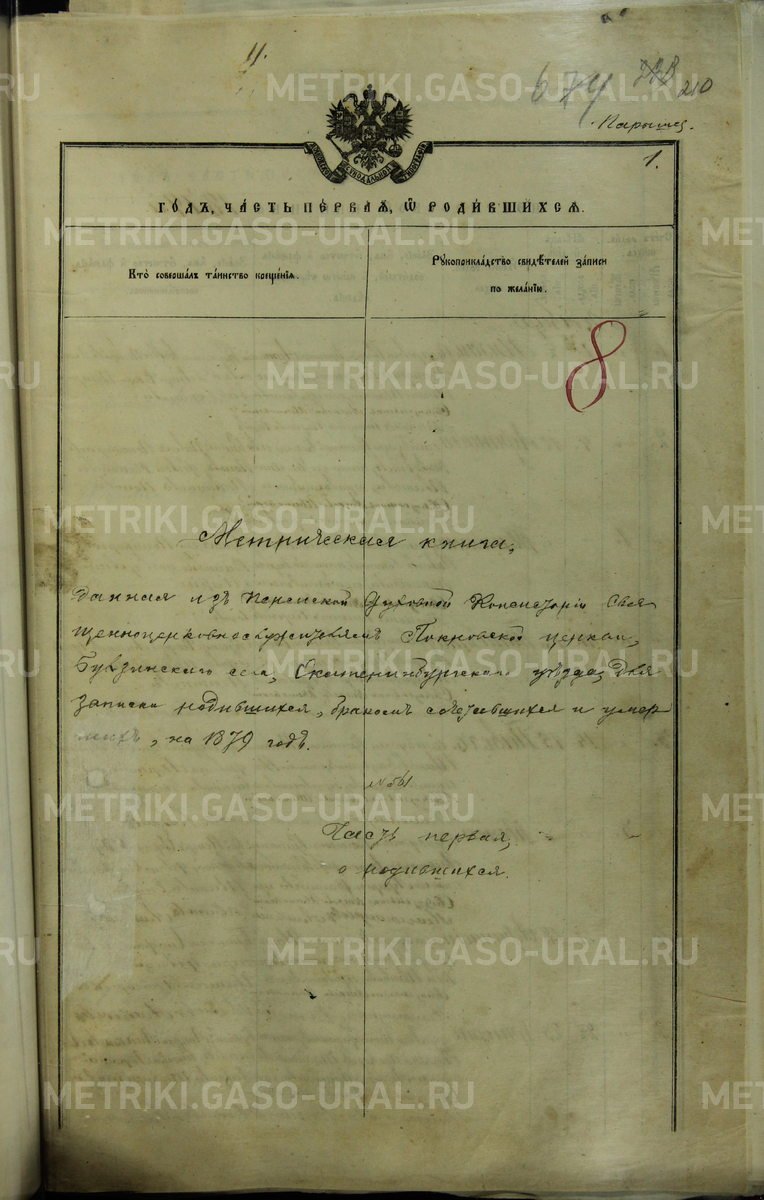 11.
674 210
1.
Годъ, часть первая, ѿ родившихся.
Кто совершалъ таинство крещенія.
Рукоприкладство свидѣтелей записи
по желанію.
8
Метрическая книга,
данная изъ Пермской Духовной Консисторіи Свя
щенноцерковнослужителямъ Покровской церкви,
села, Екатеринбургскаго уѣзда, для
записки родившихся, бракомъ сочетавшихся и умер
шихъ, на 1879 годъ.
№ 561
Часть первая,
о родившихся.
METRIKI.GASO-URAL.RU